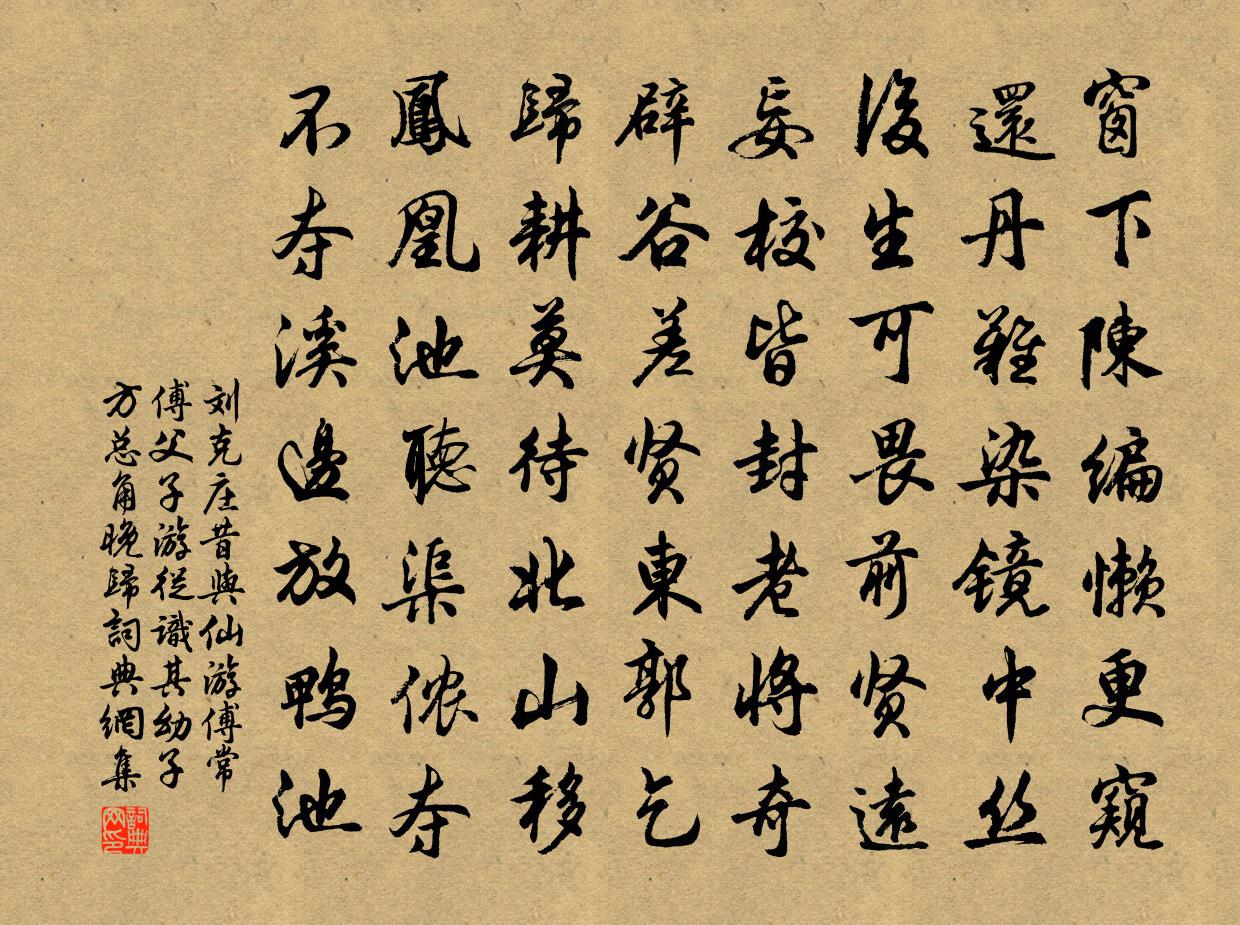 窗下陳編懶更窺
還丹難染鏡中丝
後生可畏前贤遠
妄校皆封老將奇
辟谷差贤東郭乞
歸耕莫待北山移
鳳凰池聽渠侬夺
不夺溪邊放鴨池
刘克庄昔與仙游傅常
傅父子游從識其幼子
方总角晚歸詞典網集
詞典网印